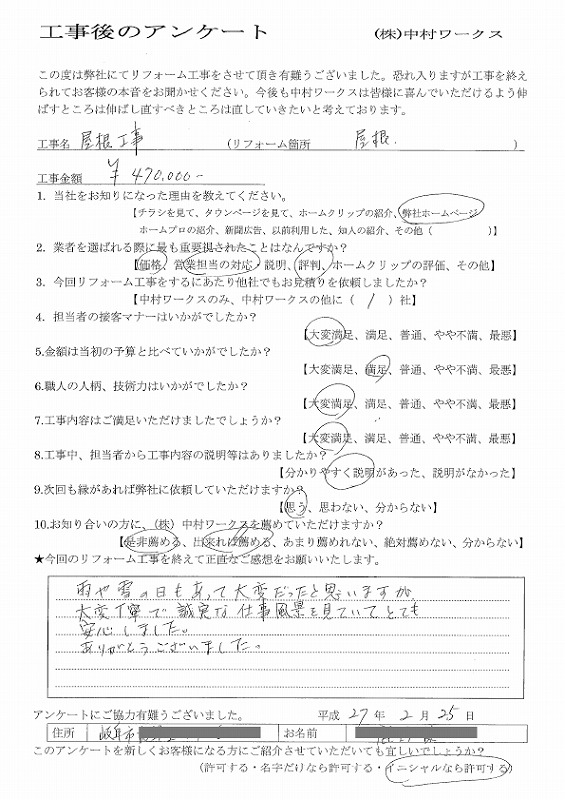 工事後のアンケート　　　(株)中村ワークス
この度は弊社にてリフォーム工事をさせて頂き有難うございました。恐れ入りますが工事を終え
られてお客様の本音をお聞かせください。今後も中村ワークスは皆様に喜んでいただけるよう伸
ばすところは伸ばし直すべきところは直していきたいと考えております。
工事名 屋根工事　　(リフォーム箇所　屋根.　)
工事金額　￥470.000-
1. 当社をお知りになった理由を教えてください。
【チラシを見て、タウンページを見て、ホームクリップの紹介、弊社ホームページ
ホームプロの紹介、新聞広告、以前利用した、知人の紹介、その他（　　　）】
2. 業者を選ばれる際に最も重要視されたことはなんですか？
【価格、営業担当の対応・説明、評判、ホームクリップの評価、その他】
3. 今回リフォーム工事をするにあたり他社でもお見積りを依頼しましたか？
【中村ワークスのみ、中村ワークスの他に（ 1 ）社】
4. 担当者の接客マナーはいかがでしたか？
【大変満足、満足、普通、やや不満、最悪】
5.金額は当初の予算と比べていかがでしたか？
【大変満足、満足、普通、やや不満、最悪】
6.職人の人柄、技術力はいかがでしたか？
【大変満足、満足、普通、やや不満、最悪】
7.工事内容はご満足いただけましたでしょうか？
【大変満足、満足、普通、やや不満、最悪】
8.工事中、担当者から工事内容の説明等はありましたか？
【分かりやすく説明があった、説明がなかった】
9.次回も縁があれば弊社に依頼していただけますか？
【思う、思わない、分からない】
10.お知り合いの方に、（株）中村ワークスを薦めていただけますか？
【是非薦める、出来れば薦める、あまり薦めれない、絶対薦めない、分からない】
★今回のリフォーム工事を終えて正直なご感想をお願いいたします。
雨や雪の日もあって大変だったと思いますが、
大変丁寧で誠実な仕事風景を見ていてとても
安心しました。
ありがとうございました。
アンケートにご協力有難うございました。　　平成 27 年 2 月 25 日
住所　岐阜市　　お名前
このアンケートを新しくお客様になる方にご紹介させていただいても宜しいでしょうか？
（許可する・名字だけなら許可する・イニシャルなら許可する）